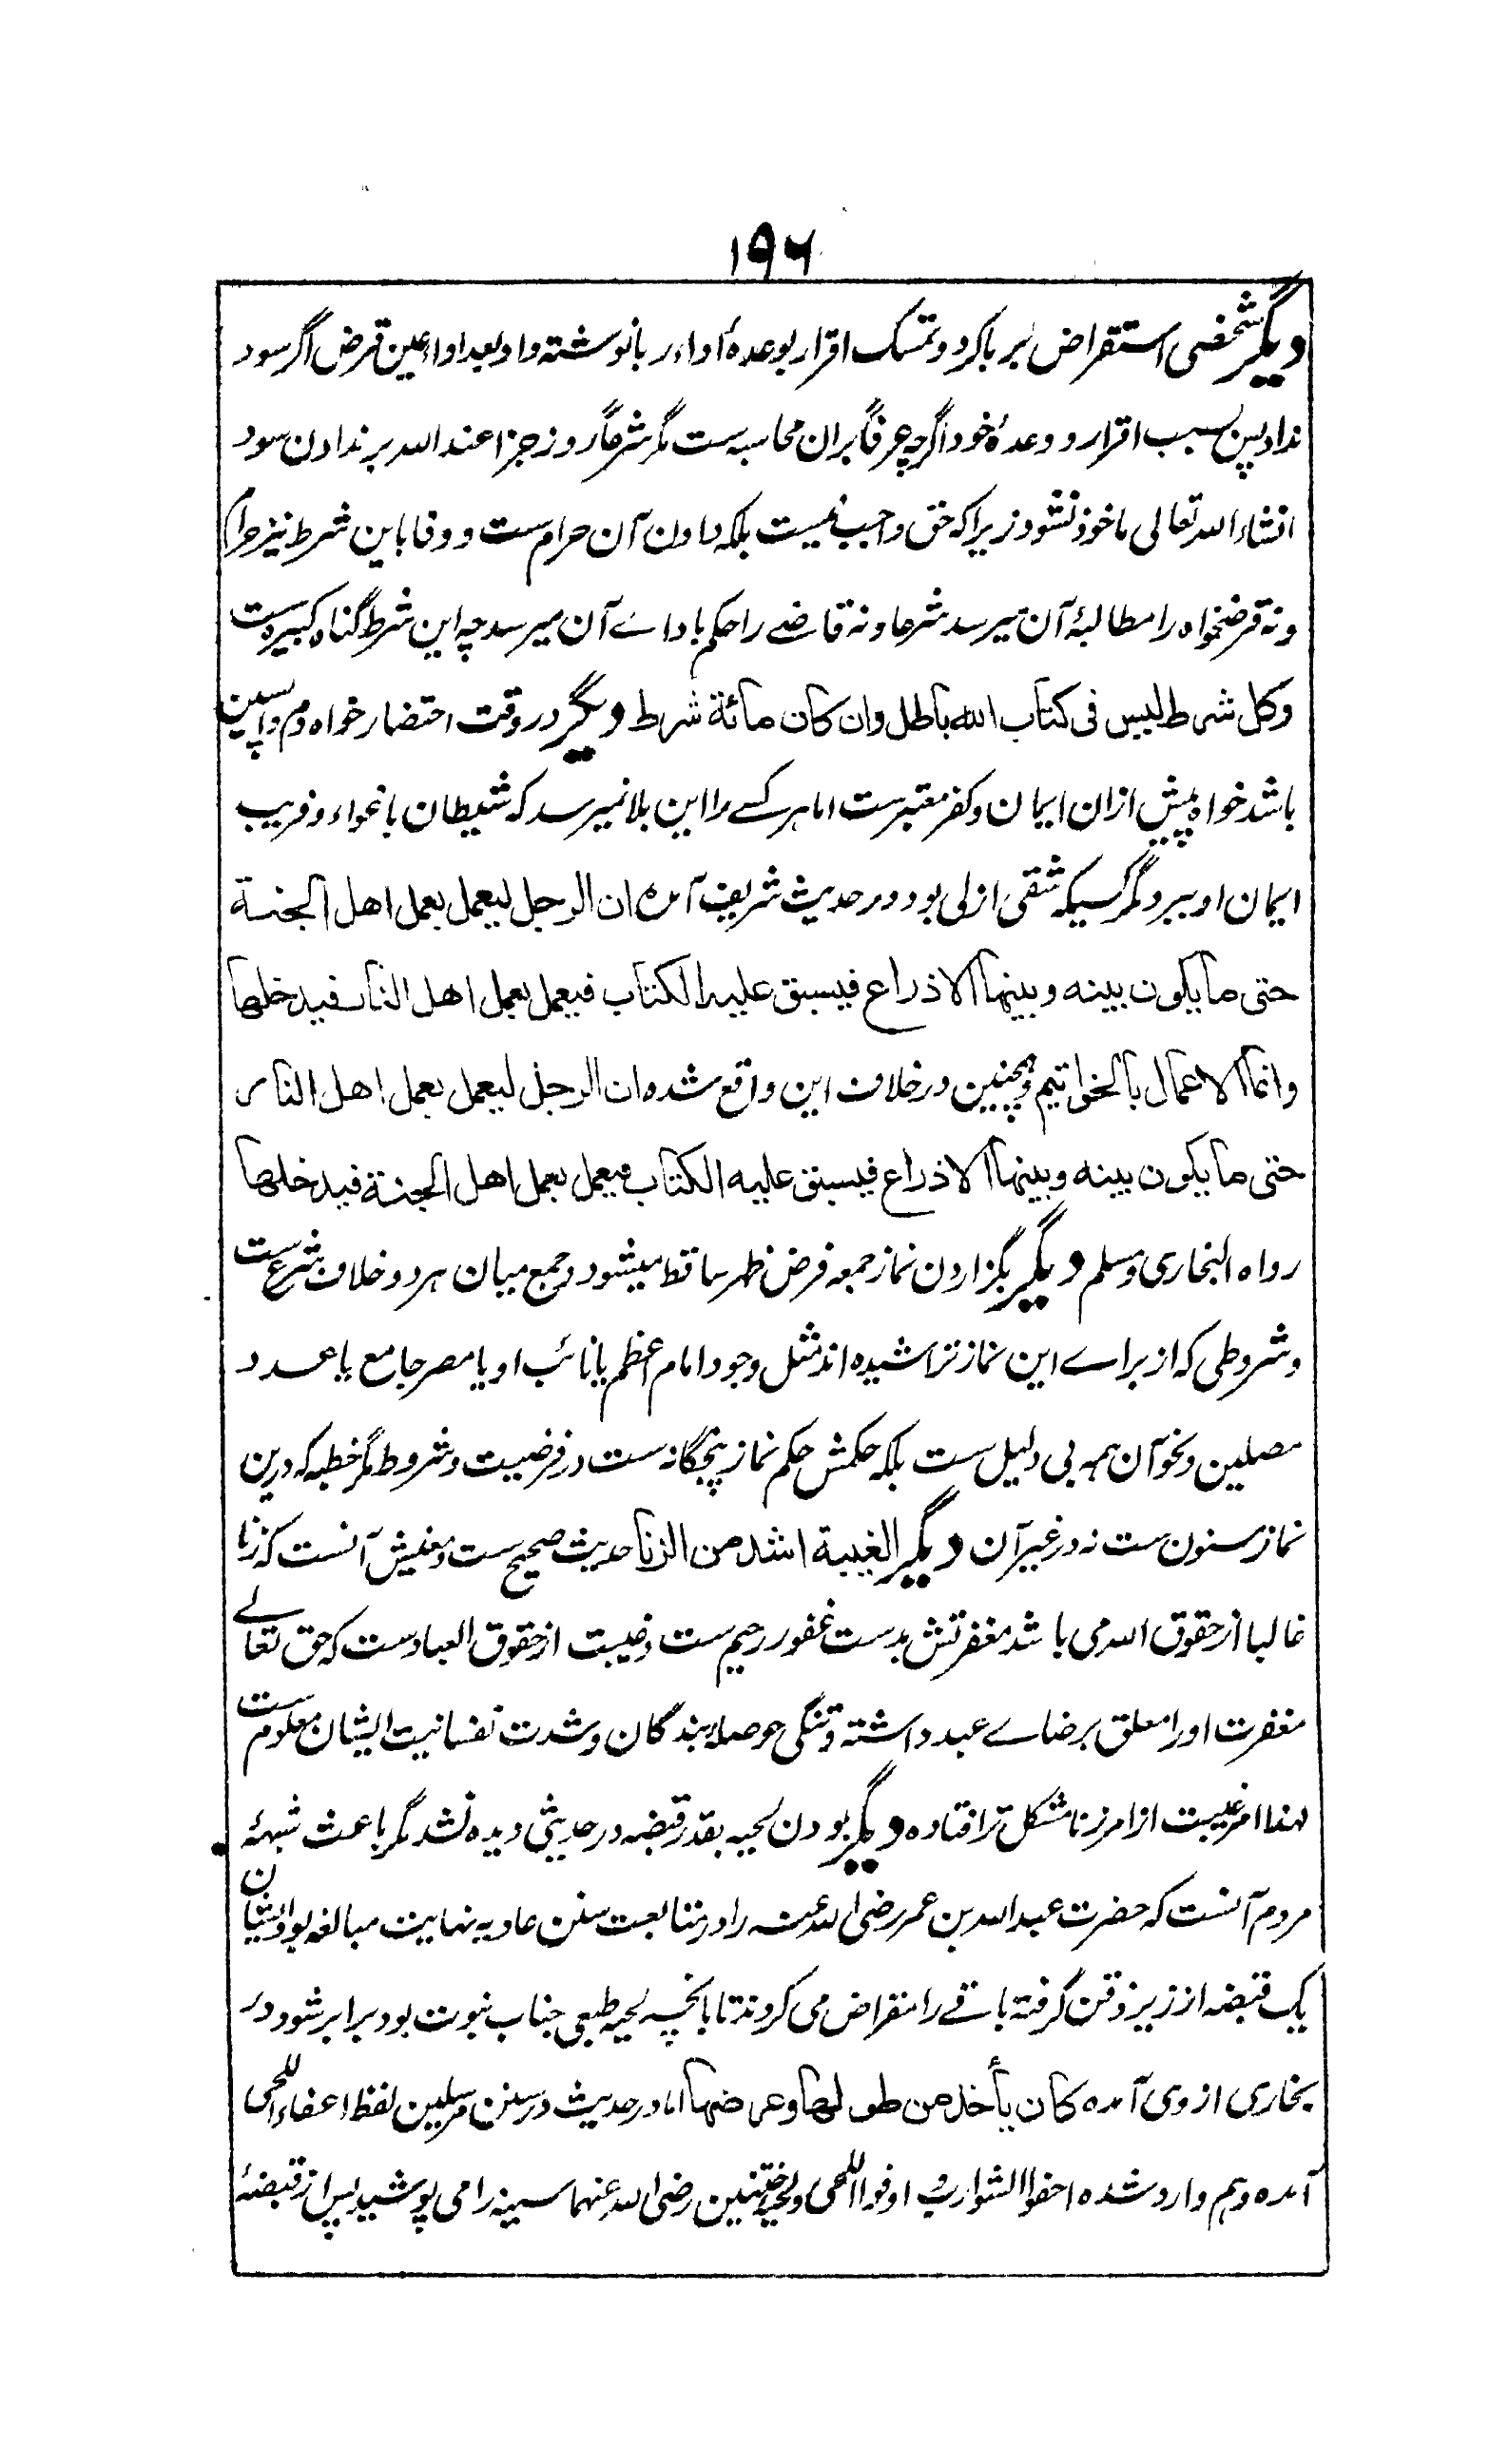 ۱۹۶
دیگر شخصی استقراض بر با کرد و تمسک اقرار بوعدهٔ اداء ربا نوشته داد بعد اداء عین قرض اگر سود
نداد پس بسبب اقرار و وعدهٔ خود اگرچه عرفاً بران محاسبه ست مگر شرعاً روز جزا عند الله بر ندادن سود
انشاء الله تعالی ماخوذ نشود زیرا که حق واجب نیست بلکه دادن آن حرام ست و وفا باین شرط نیز حرام
و نه قرضخواه را مطالبهٔ آن میرسد شرعا و نه قاضے را حکم باداے آن میرسد چه این شرط گناه کبیره ست
وکل شرط لیس فی کتاب الله باطل وان کان مائة شرط دیگر در وقت احتضار خواه دم واپسین
باشد خواه پیش ازان ایمان و کفر معتبرست اما هر کسے را این بلا نمیرسد که شیطان باغواء و فریب
ایمان او ببرد مگر کسیکه شقی ازلی بود در حدیث شریف آمده ان الرجل لیعمل بعمل اهل الجنة
حتی ما یکون بینه وبینها الا ذراع فیسبق علیه الکتاب فیعمل بعمل اهل النار فیدخلها
وانما الاعمال بالخواتیم وهمچنین در خلاف این واقع شده ان الرجل لیعمل بعمل اهل النار
حتی ما یکون بینه وبینها الا ذراع فیسبق علیه الکتاب فیعمل بعمل اهل الجنة فیدخلها
رواه البخاری ومسلم دیگر بگزاردن نماز جمعه فرض ظهر ساقط میشود و جمع میان هر دو خلاف شرع ست
و شروطی که از براے این نماز تراشیده اند مثل وجود امام اعظم یا نائب او یا مصر جامع یا عدد
مصلین و نحو آن همه بی دلیل ست بلکه حکمش حکم نماز پنجگانه ست در فرضیت و شروط مگر خطبه که درین
نماز مسنون ست نه در غیر آن دیگر الغیبة اشد من الزنا حدیث صحیح ست و معنیش آنست که زنا
غالبا از حقوق الله می باشد مغفرتش بدست غفور رحیم ست و غیبت از حقوق العبادست که حق تعالے
مغفرت او را معلق برضاے عبد داشته و تنگی حوصله بندگان و شدت نفسانیت ایشان معلوم ست
لهذا امر غیبت از امر زنا مشکل تر افتاده دیگر بودن لحیه بقدر قبضه در حدیثی دیده نشد مگر باعث شبههٔ
مردم آنست که حضرت عبد الله بن عمر رضی الله عنه را در متابعت سنن عادیه نهایت مبالغه بود ایشان
یک قبضه از زیر ذقن گرفته باقے را منقراض می کردند تا بانچه لحیه طبعی جناب نبوت بود برابر شود در
بخاری از وی آمده کان یأخذ من طولها وعرضها اما در حدیث در سنن مرسلین لفظ اعفاء اللحی
آمده و هم وارد شده احفوا الشوارب و اوفوا اللحی و لحیه ختنین رضی الله عنهما سینه را می پوشید پس از قبضهٔ